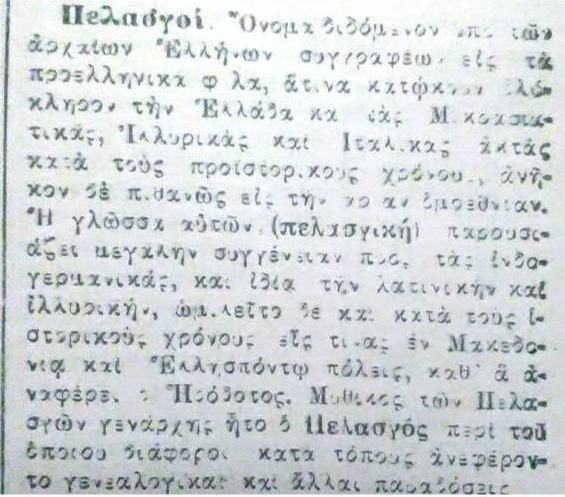 Πελασγοί. Ὄνομα διδόμενον ὑπὸ τῶν
ἀρχαίων Ἑλλήνων συγγραφέων εἰς τὰ
προελληνικὰ φῦλα, ἅτινα κατῴκουν ὁλό-
κληρον τὴν Ἑλλάδα καὶ τὰς Μικρασια-
τικάς, Ἰλλυρικὰς καὶ Ἰταλικὰς ἀκτὰς
κατὰ τοὺς προϊστορικοὺς χρόνους, ἀνῆ-
κον δὲ πιθανῶς εἰς τὴν ὁμοεθνίαν.
Ἡ γλῶσσα αὐτῶν (πελασγικὴ) παρουσι-
άζει μεγάλην συγγένειαν πρὸς τὰς ἰνδο-
γερμανικάς, καὶ ἰδίᾳ τὴν λατινικὴν καὶ
ἰλλυρικήν, ὡμιλεῖτο δὲ καὶ κατὰ τοὺς ἱ-
στορικοὺς χρόνους εἴς τινας ἐν Μακεδο-
νίᾳ καὶ Ἑλλησπόντῳ πόλεις, καθ' ἃ ἀ-
ναφέρει ὁ Ἡρόδοτος. Μυθικὸς τῶν Πελα-
σγῶν γενάρχης ἦτο ὁ Πελασγός περὶ τοῦ
ὁποίου διάφοροι κατὰ τόπους ἀνεφέρον-
το γενεαλογικαὶ καὶ ἄλλαι παραδόσεις